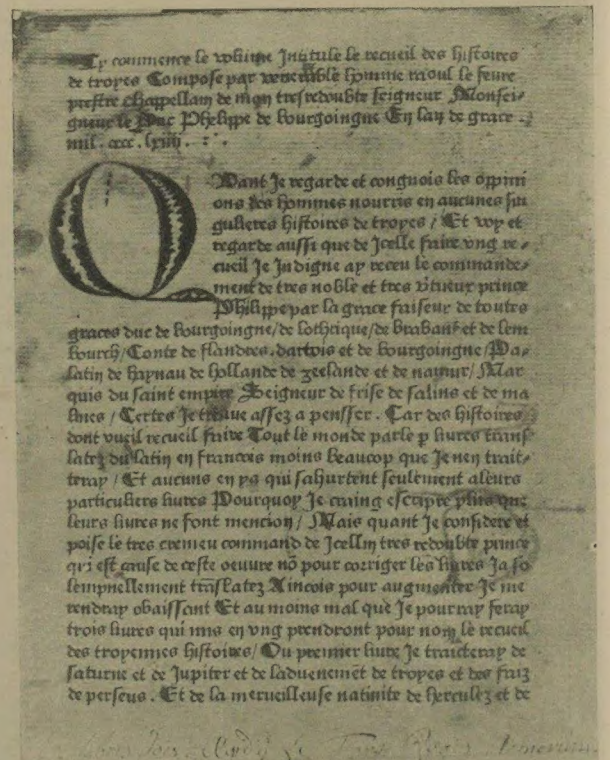 Cy commence le volume Intitule le recueil des histoires
de troyes Compose par venerable homme raoul le feure
prestre chappellain de mon tresredoubte seigneur Monsei-
gneur le Duc Phelippe de bourgoingne En lan de grace .
mil. cccc. lxiiii. . : .
QUant Je regarde et congnois les oppini
ons des hommes nourris en aucunes sin
gulieres histoires de troyes / Et voy et
regarde aussi que de Icelle faire vng re-
cueil Je Indigne ay receu le commande-
ment de tres noble et tres vertueux prince
Philippe par la grace faiseur de toutes
graces duc de bourgoingne/de lothrique/de brabant et de lem
bourch/Conte de flandres.dartois et de bourgoingne/Pa-
latin de haynau de hollande de zeelande et de namur/Mar
quis du saint empire Seigneur de frise de salins et de ma
lines / Certes Je treuue assez a pensser . Car des histoires
dont vueil recueil faire Tout le monde parle p liures trans-
latez du latin en francois moins beaucop que Je nen trait-
teray / Et aucuns en ya qui sahurtent seulement aleurs
particuliers liures Pourquoy Je craing escripre plus que
leurs liures ne font mencion / Mais quant Je considere et
poise le tres cremeu command de Icellui tres redoubte prince
qui est cause de ceste oeuure nō pour corriger les liures Ja so
lempnellement trāslatez Aincois pour augmenter Je me
rendray obaissant Et au moins mal que Je pourray feray
trois liures qui mis en vng prendront pour nom le recueil
des troyennes histoires/ Ou premier liure Je traicteray de
saturne et de Jupiter et de laduenemēt de troyes et des faiz
de perseus . Et de la merueilleuse natiuite de herculez et de